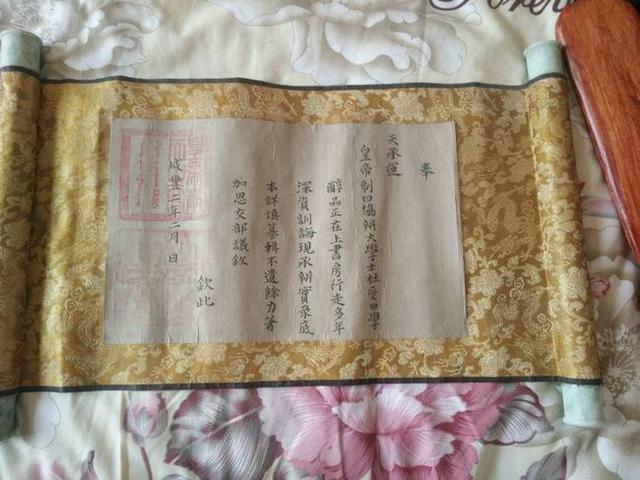 奉
天承運
皇帝制曰協辦大學士杜受田學
醇品正在上書房行走多年
深資訓誨現承辦實彔底
本詳慎纂輯不遺餘力著
加恩交部議敘
欽此
咸豐二年二月 日